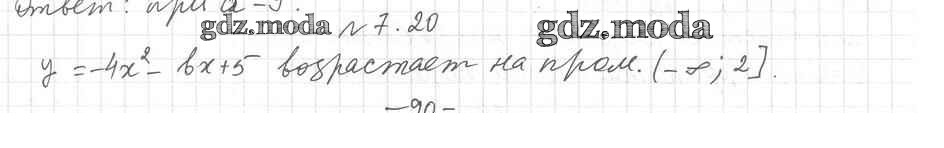 Ответ: при a - 3.
gdz.moda № 7.20 gdz.moda
y = -4x² - bx + 5 возрастает на пром. (-∞; 2].
-90-